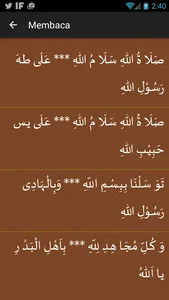 2:40
Membaca
صَلَا ةُ اللهِ سَلَا مُ اللهِ *** عَلَى طهَ
رَسُوْلِ اللهِ
صَلَا ةُ اللهِ سَلَا مُ اللهِ *** عَلَى يس
حَبِيْبِ اللهِ
تَوَ سَلْنَا بِبِسْمِ اللّهِ *** وَبِالْهَادِى
رَسُوْلِ اللهِ
وَ كُلِّ مُجَا هِدِ لِلّهِ *** بِاَهْلِ الْبَدْ رِ
يَا اَللهُ